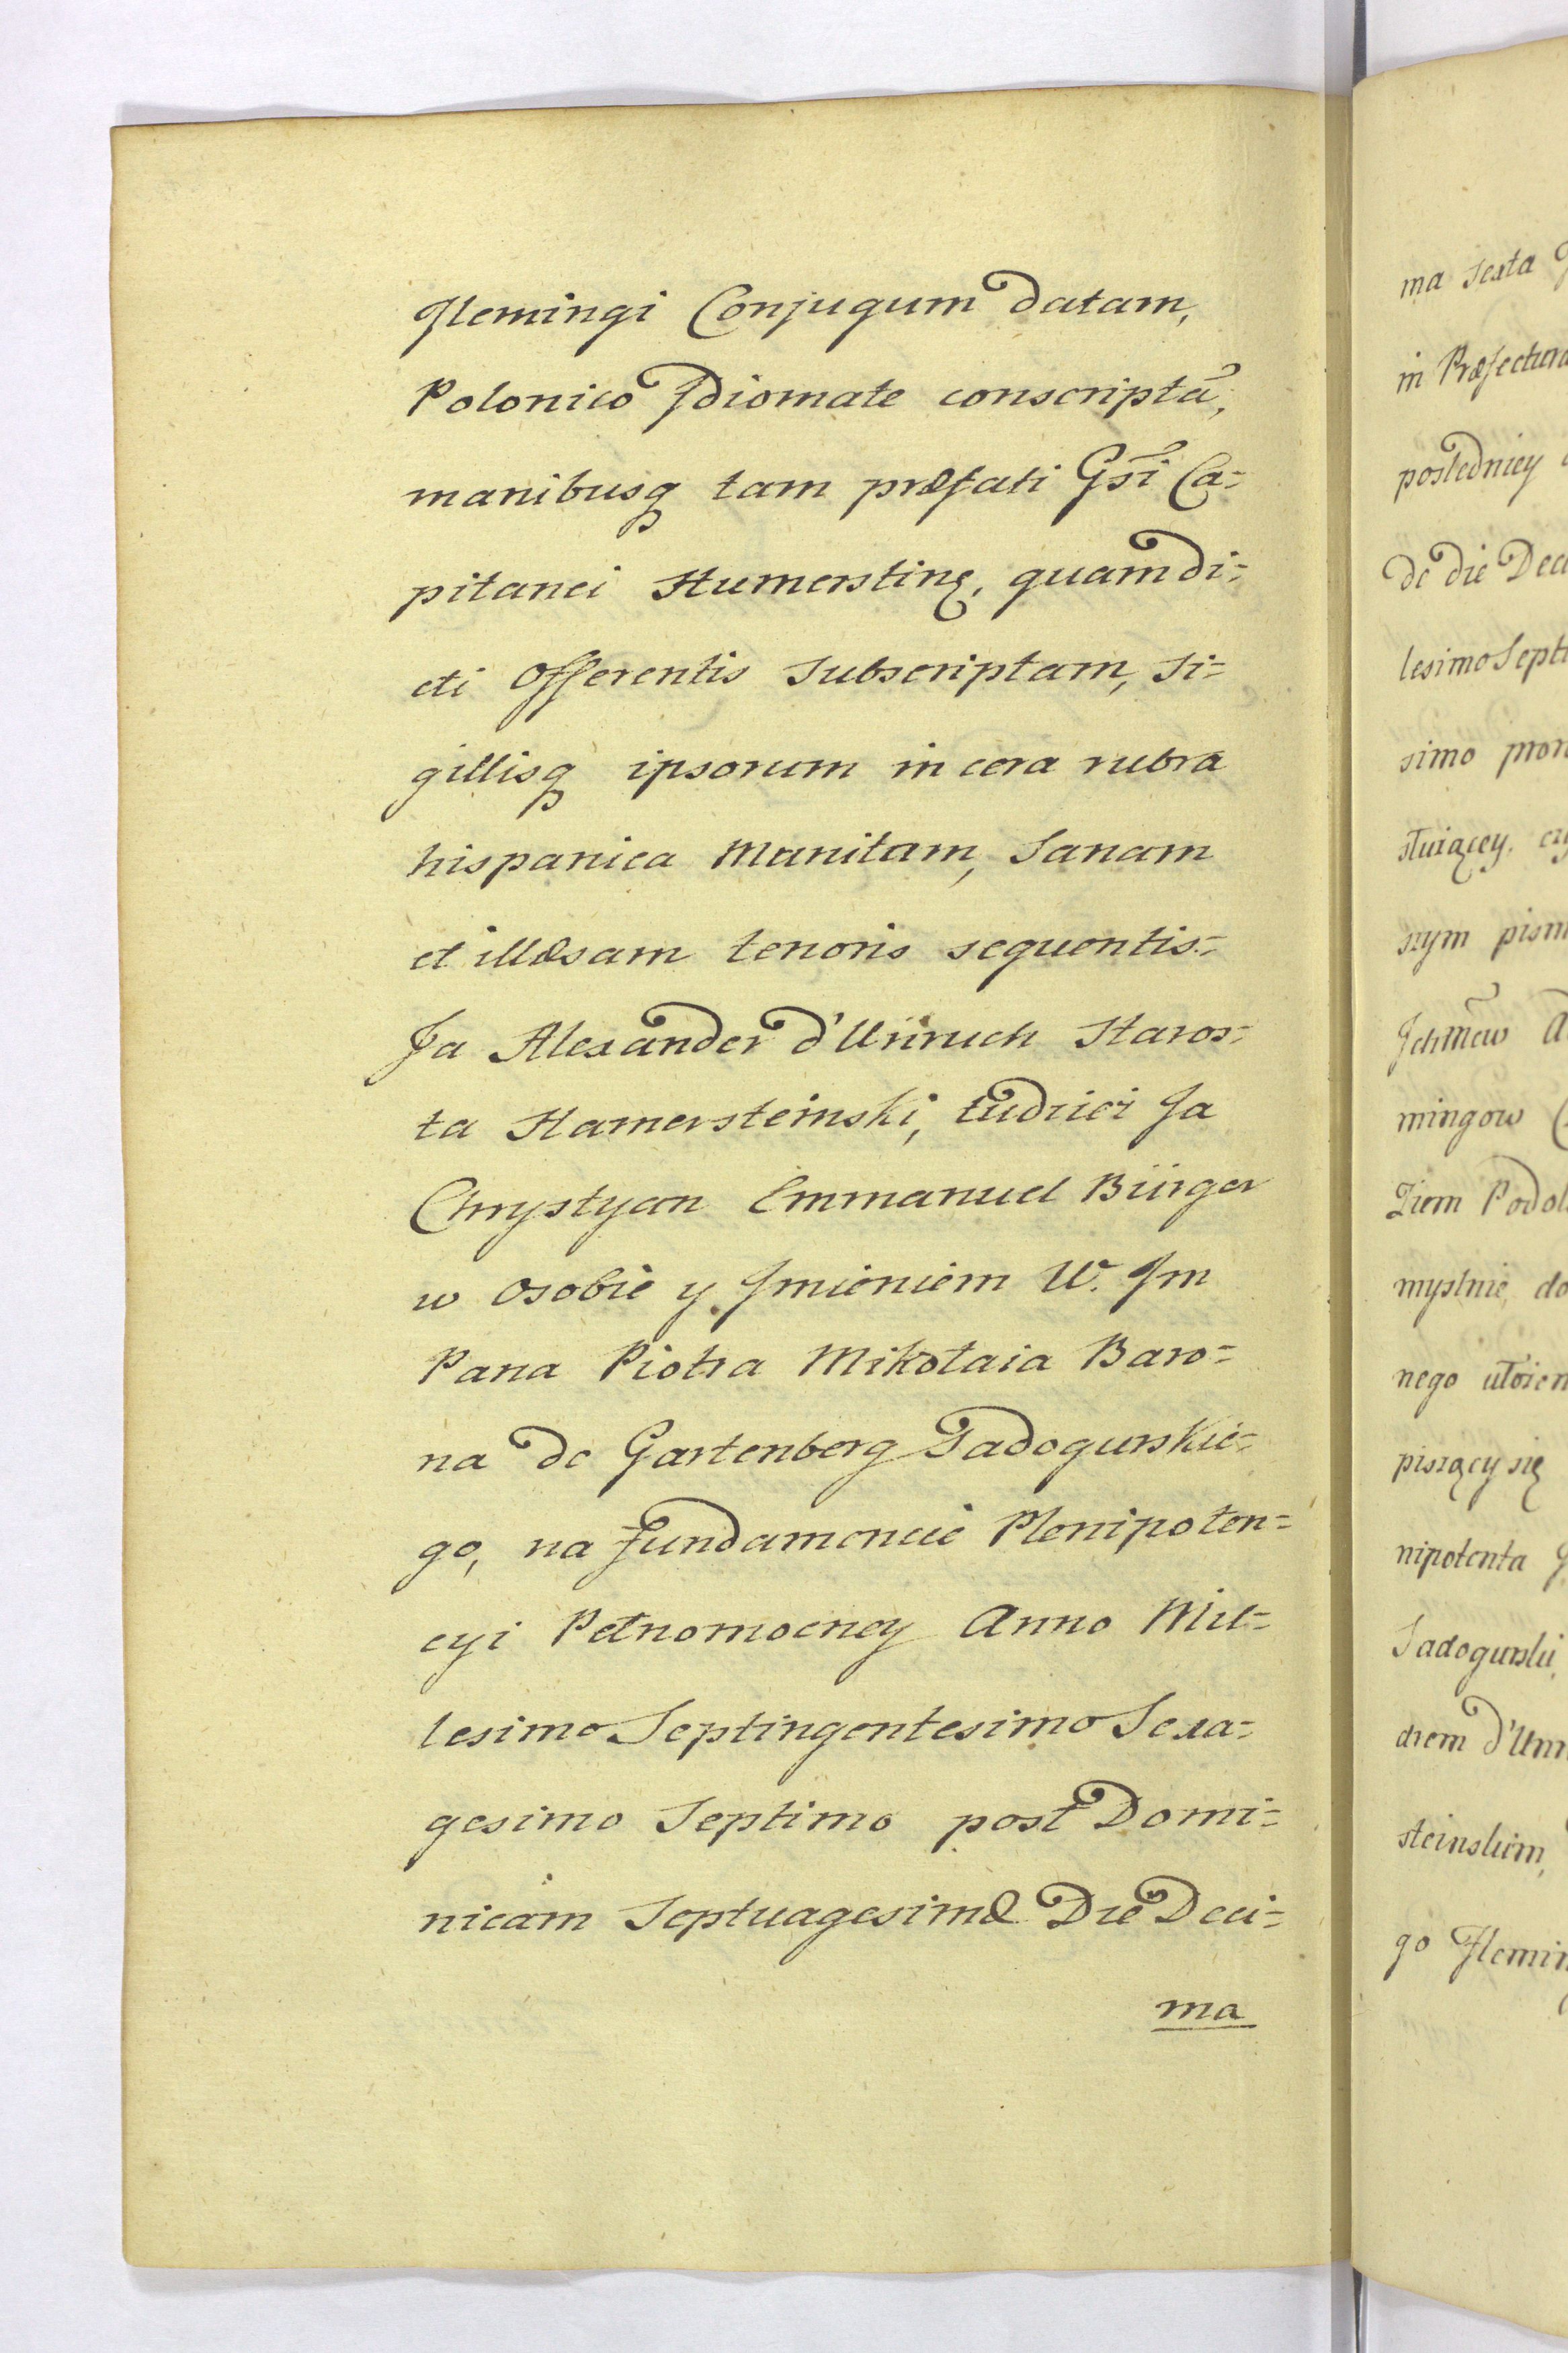 Flemingi Conjugum datam,
Polonico Jdiomate conscriptã,
manibusq tam præfati Gsi Ca=
pitanei Humerstinę, quam di=
cti Offerentis Subscriptam, Si=
gillisq ipsorum in cera rubra
hispanica Munitam, Sanam
et illæsam tenoris sequentis.=
Ja Alexander d'Unruch Staros=
ta Hamersteinski, tudzież Ja
Chrystyan Emmanuel Bürger
w osobie y Jmieniem W. Jm
Pana Piotra Mikołaia Baro=
na de Gartenberg Sadogurskie=
go, na fundamencie Plenipoten=
cyi Pełnomocney Anno Mil=
lesimo Septingentesimo Sexa=
gesimo Septimo post Domi=
nicam Septuagesimæ Die Deci=
ma
ma Sexta
in Præfectura
posledniey
de die Deci
lesimo Septi
simo pron
służącey,
szym pism
Jchmćiów
mingow
Ziem Podol
myślnie do
nego ułożen
piszący się
nipotenta
Sadogurski,
drem d'Unr
steinskiem,
go Flemin